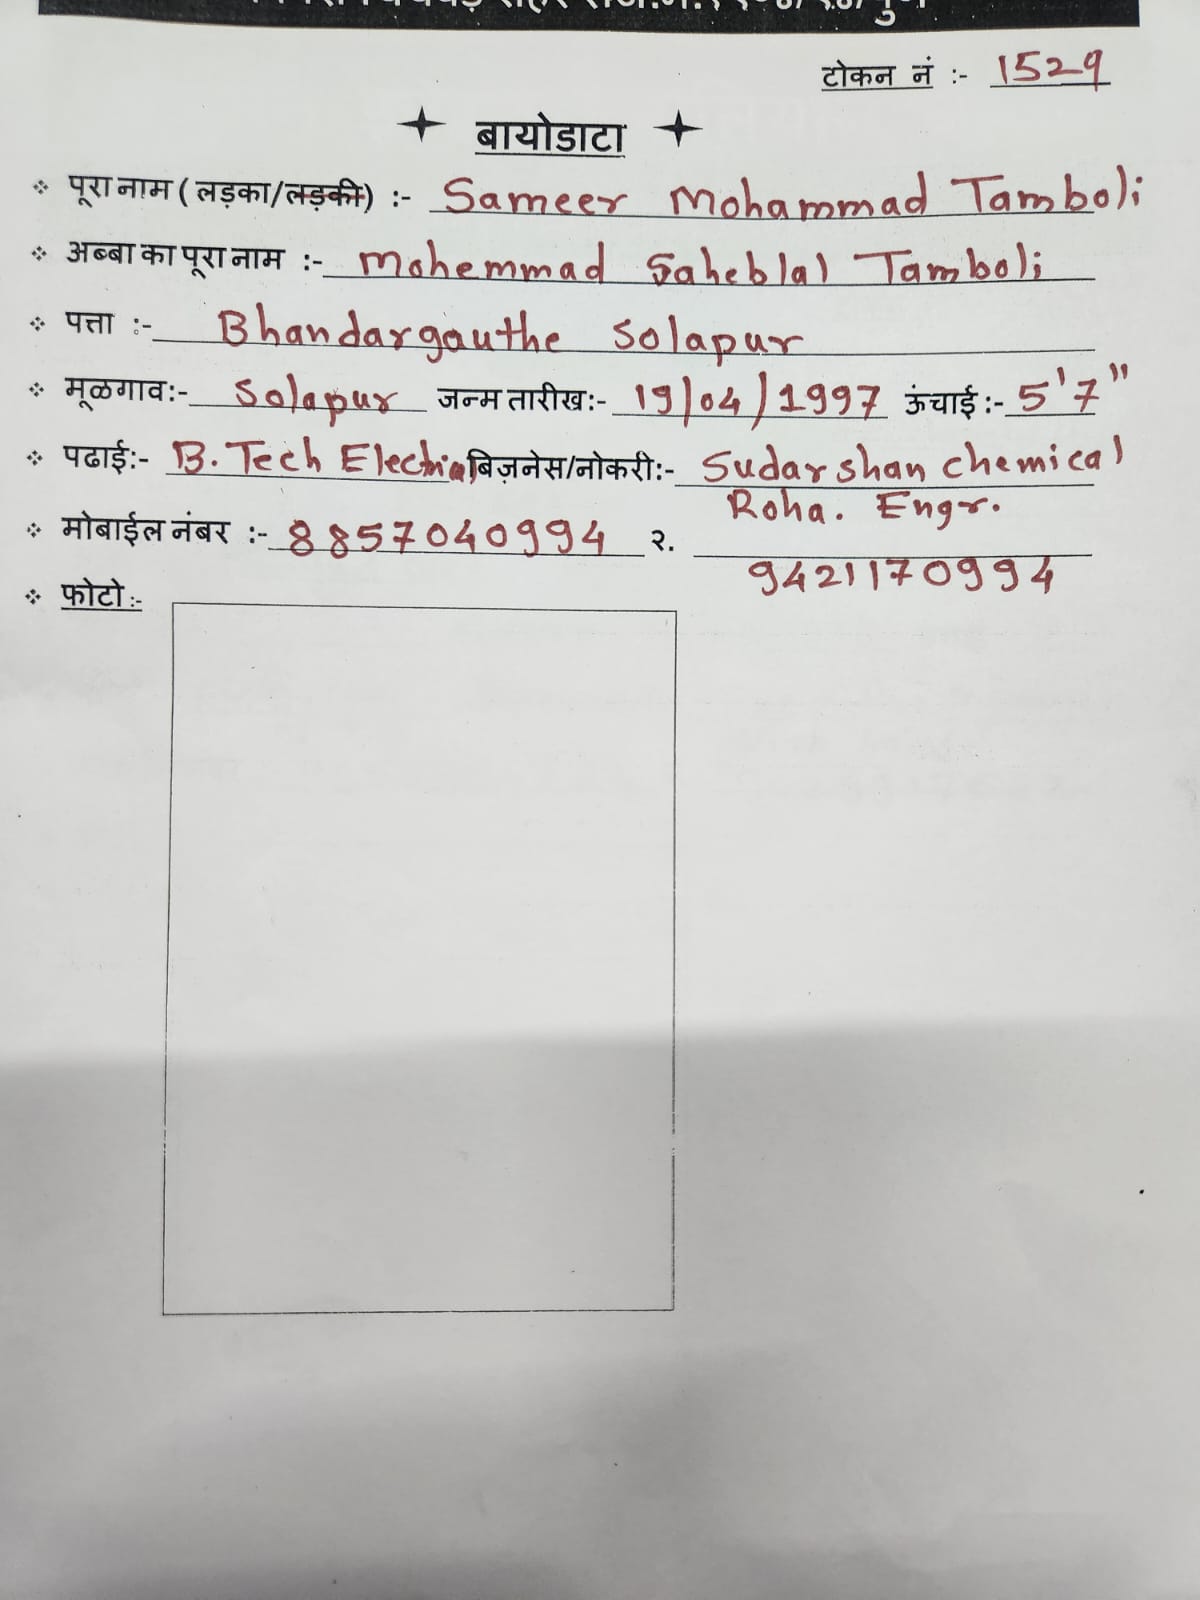 टोकन नं :- 1529
बायोडाटा
पूरा नाम ( लड़का/लड़की) :- Sameer Mohammad Tamboli
अब्बा का पूरा नाम :- Mohemmad Saheblal Tamboli
पत्ता :- Bhandargauthe Solapur
मूळगाव:- Solapur जन्म तारीख:- 19/04/1997 ऊंचाई :- 5'7"
पढाई:- B. Tech Electrical बिज़नेस/नोकरी:- Sudarshan chemical
Roha. Engr.
मोबाईल नंबर :- 8857040994 २.
9421170994
फोटो :-